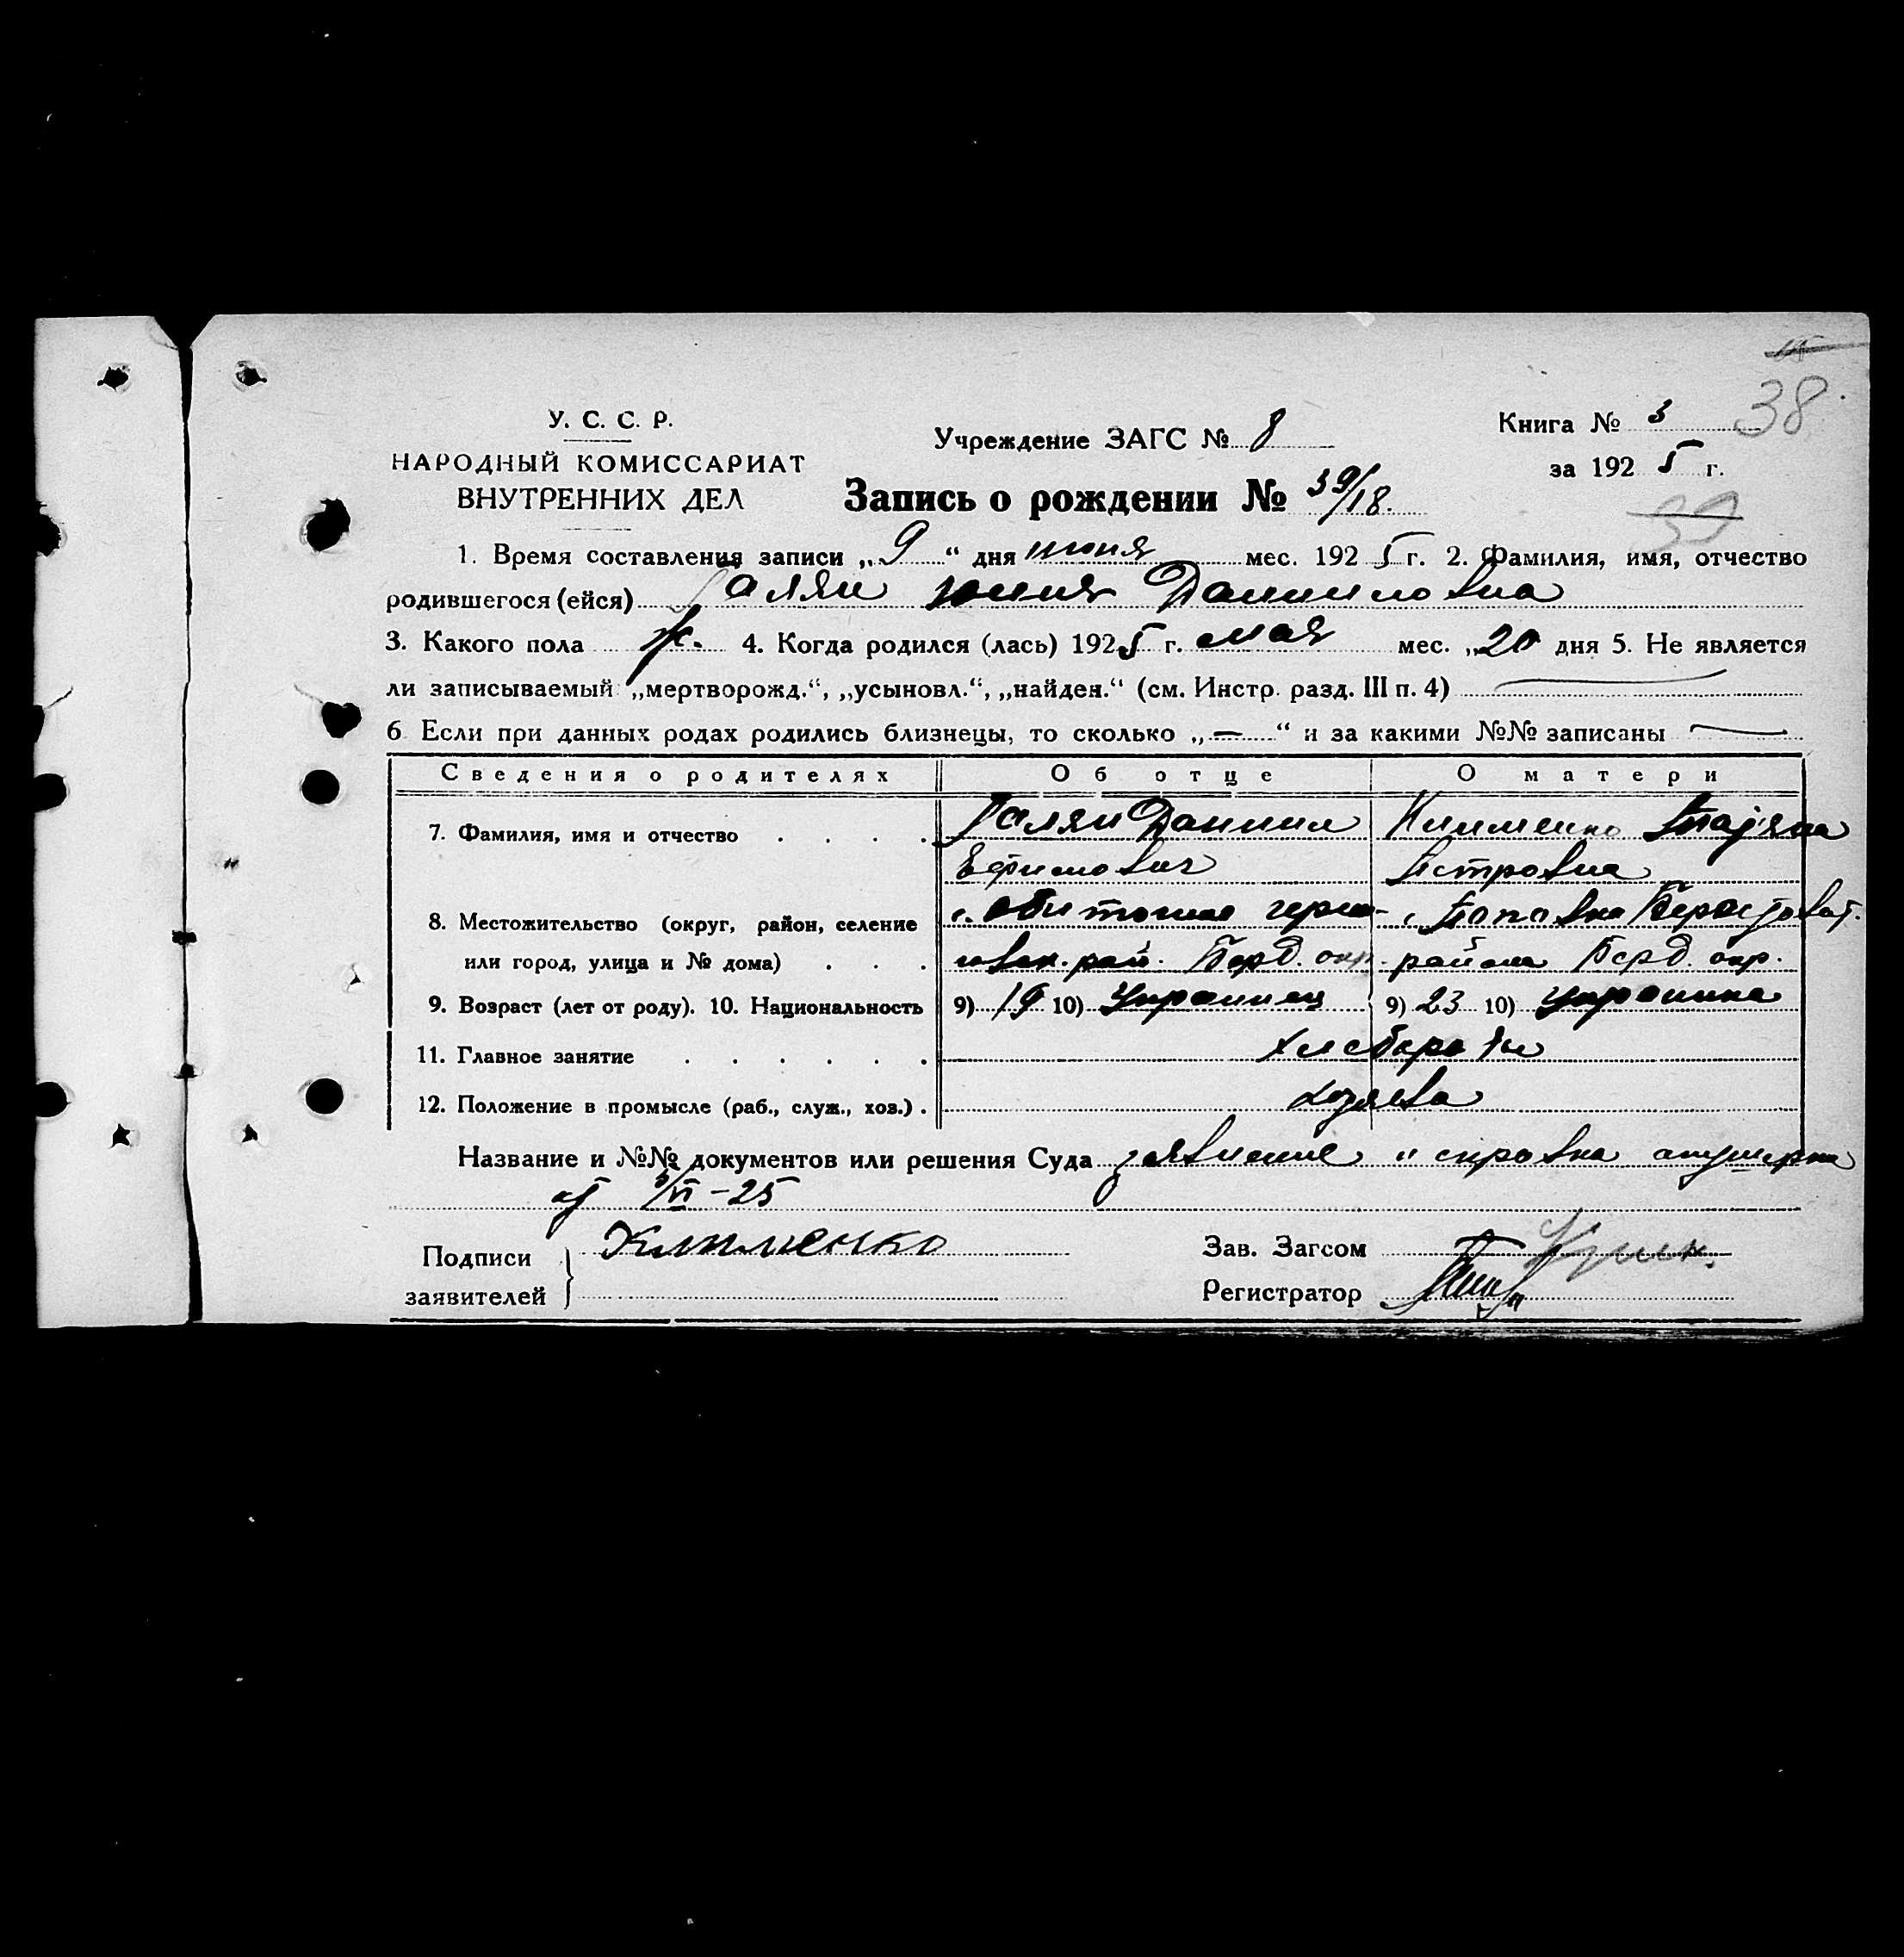 38
У. С. С. Р.
НАРОДНЫЙ КОМИССАРИАТ
ВНУТРЕННИХ ДЕЛ
Учреждение ЗАГС № 8
Книга № 3
за 1925 г.
Запись о рождении № 39/18.
39
1. Время составления записи „9“ дня июня мес. 1925 г. 2. Фамилия, имя, отчество
родившегося (ейся) Галян Юлия Данииловна
3. Какого пола ж. 4. Когда родился (лась) 1925 г. мая мес. „20 дня 5. Не является
ли записываемый „мертворожд.“, „усыновл.“, „найден.“ (см. Инстр. разд. III п. 4) —
6 Если при данных родах родились близнецы, то сколько „—“ и за какими №№ записаны —
Сведения о родителях Об отце О матери
7. Фамилия, имя и отчество . . . . Галян Даниил Клименко Татяна
Ефимович Петровна
8. Местожительство (округ, район, селение с. Обиточное черни- с. Поповка Берестоват.
или город, улица и № дома) . . . говск. рай. Берд. окр. района Берд. окр.
9. Возраст (лет от роду). 10. Национальность 9) 19 10) Украинец 9) 23 10) Украинка
11. Главное занятие . . . . . . Хлеборобы
12. Положение в промысле (раб., служ., хоз.) . хозяева
Название и №№ документов или решения Суда заявление и справка акушерки
от 3/VI-25
Подписи заявителей } Клименко
Зав. Загсом
Регистратор